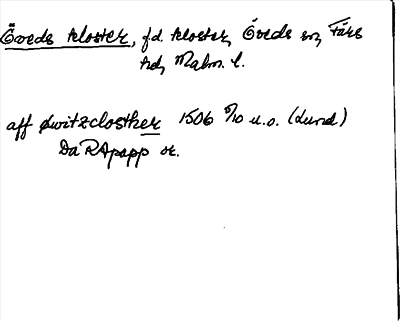 Öveds kloster, f.d. kloster, Öveds sn, Färs
hd, Malm. l.
aff øwitzclosther 1506 5/10 u.o. (Lund)
Da RApapp or.